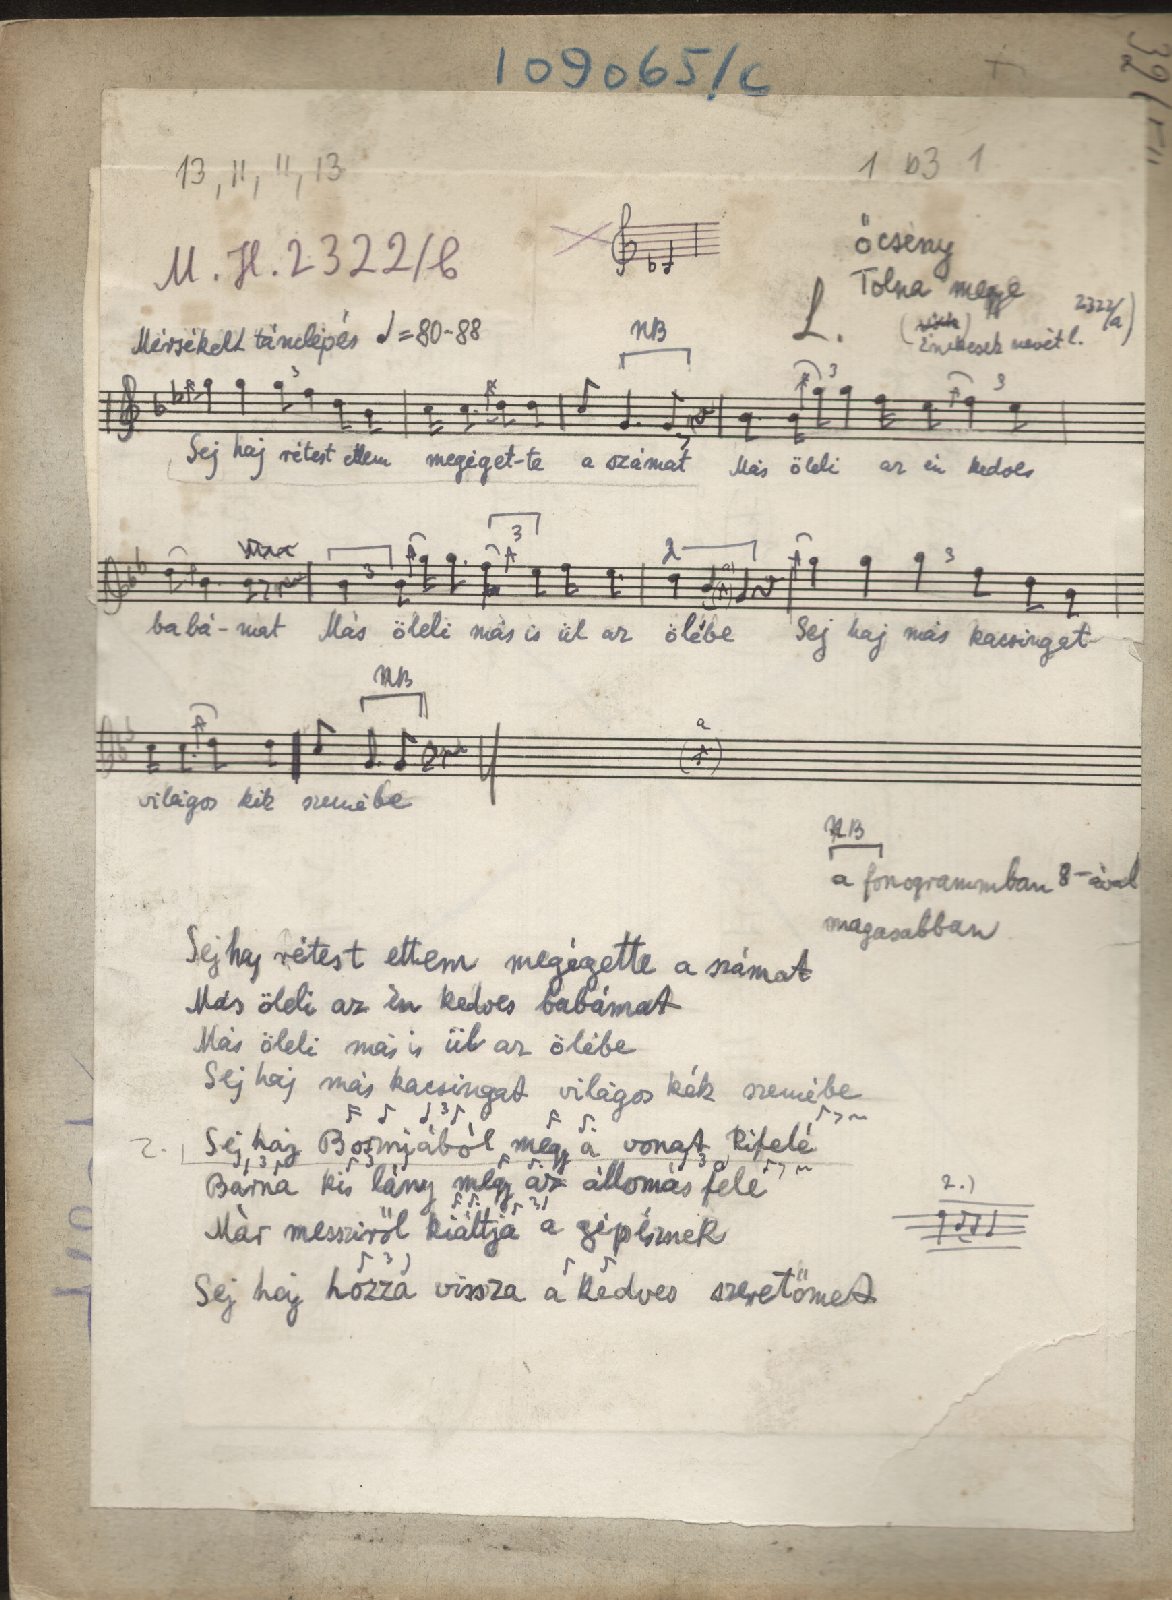 109065/c
13, 11, 11, 13
1 b3 1
M.H. 2322/b
Őcsény
Tolna megye
L.
2322/a)
énekesek nevét l.
Mérsékelt tánclépés ♩=80-88
NB
3
3
3
Sej haj rétest ettem megéget-te a számat Más öleli az én kedves
3
3
3
babá-mat Más öleli más is ül az ölébe Sej haj más kacsingat
NB
a
világos kék szemébe
NB
a fonogrammban 8-ával
magasabban
Sej haj rétest ettem megégette a számat
Más öleli az én kedves babámat
Más öleli más is ül az ölébe
Sej haj más kacsingat világos kék szemébe
2. Sej haj Boszniából megy a vonat kifelé
Barna kis lány megy az állomás felé
2.)
Már messziről kiáltja a gépésznek
Sej haj hozzá vissza a kedves szeretőmet